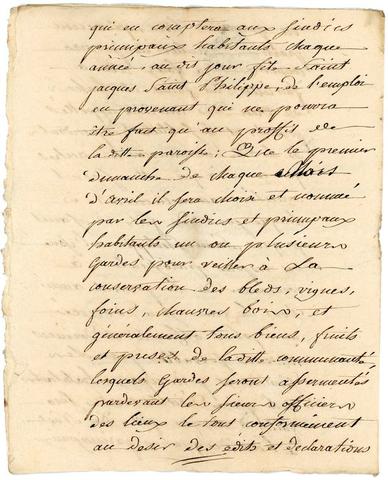 qui en comptera aux sindics
principaux habitants chaque
année, au dis jour fête Saint
jacques Saint Philippe, de l'emploi
en provenant qui ne pourra
être fait qu'au proffit de
la ditte paroisse; Que le premier
dimanche de chaque Mois
d'avril il sera choisi et nommé
par les sindics et principaux
habitants un ou plusieurs
Gardes pour veiller à La
conservation des bleds, vignes,
foins, chauvres bois, et
généralement tous biens, fruits
et prises de laditte communauté,
lesquels Gardes seront assermentés
pardevant les sieurs officiers
des lieux le tout conformément
au desir des édits et declarations